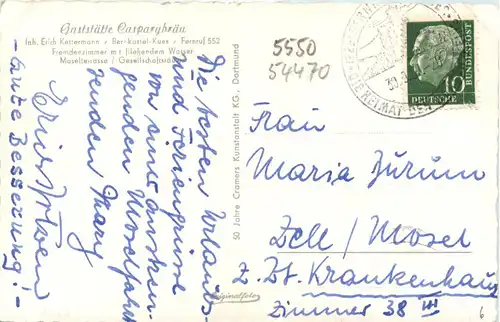 Gaststätte Casparybräu
Inh. Erich Kettermann · Bernkastel-Kues · Fernruf 552
Fremdenzimmer mit fließendem Wasser
Moselterrasse / Gesellschaftsräume
Die besten Urlaubs-
und Feriengrüße
von einer
Moselfahrt
senden
- Gute Besserung! -
50 Jahre Cramers Kunstanstalt KG, Dortmund
Originalfoto
5550
54470
DEUTSCHE BUNDESPOST
10
Frau
Maria Zürum
Zell / Mosel
z. Zt. Krankenhaus
Zimmer 38 III
6